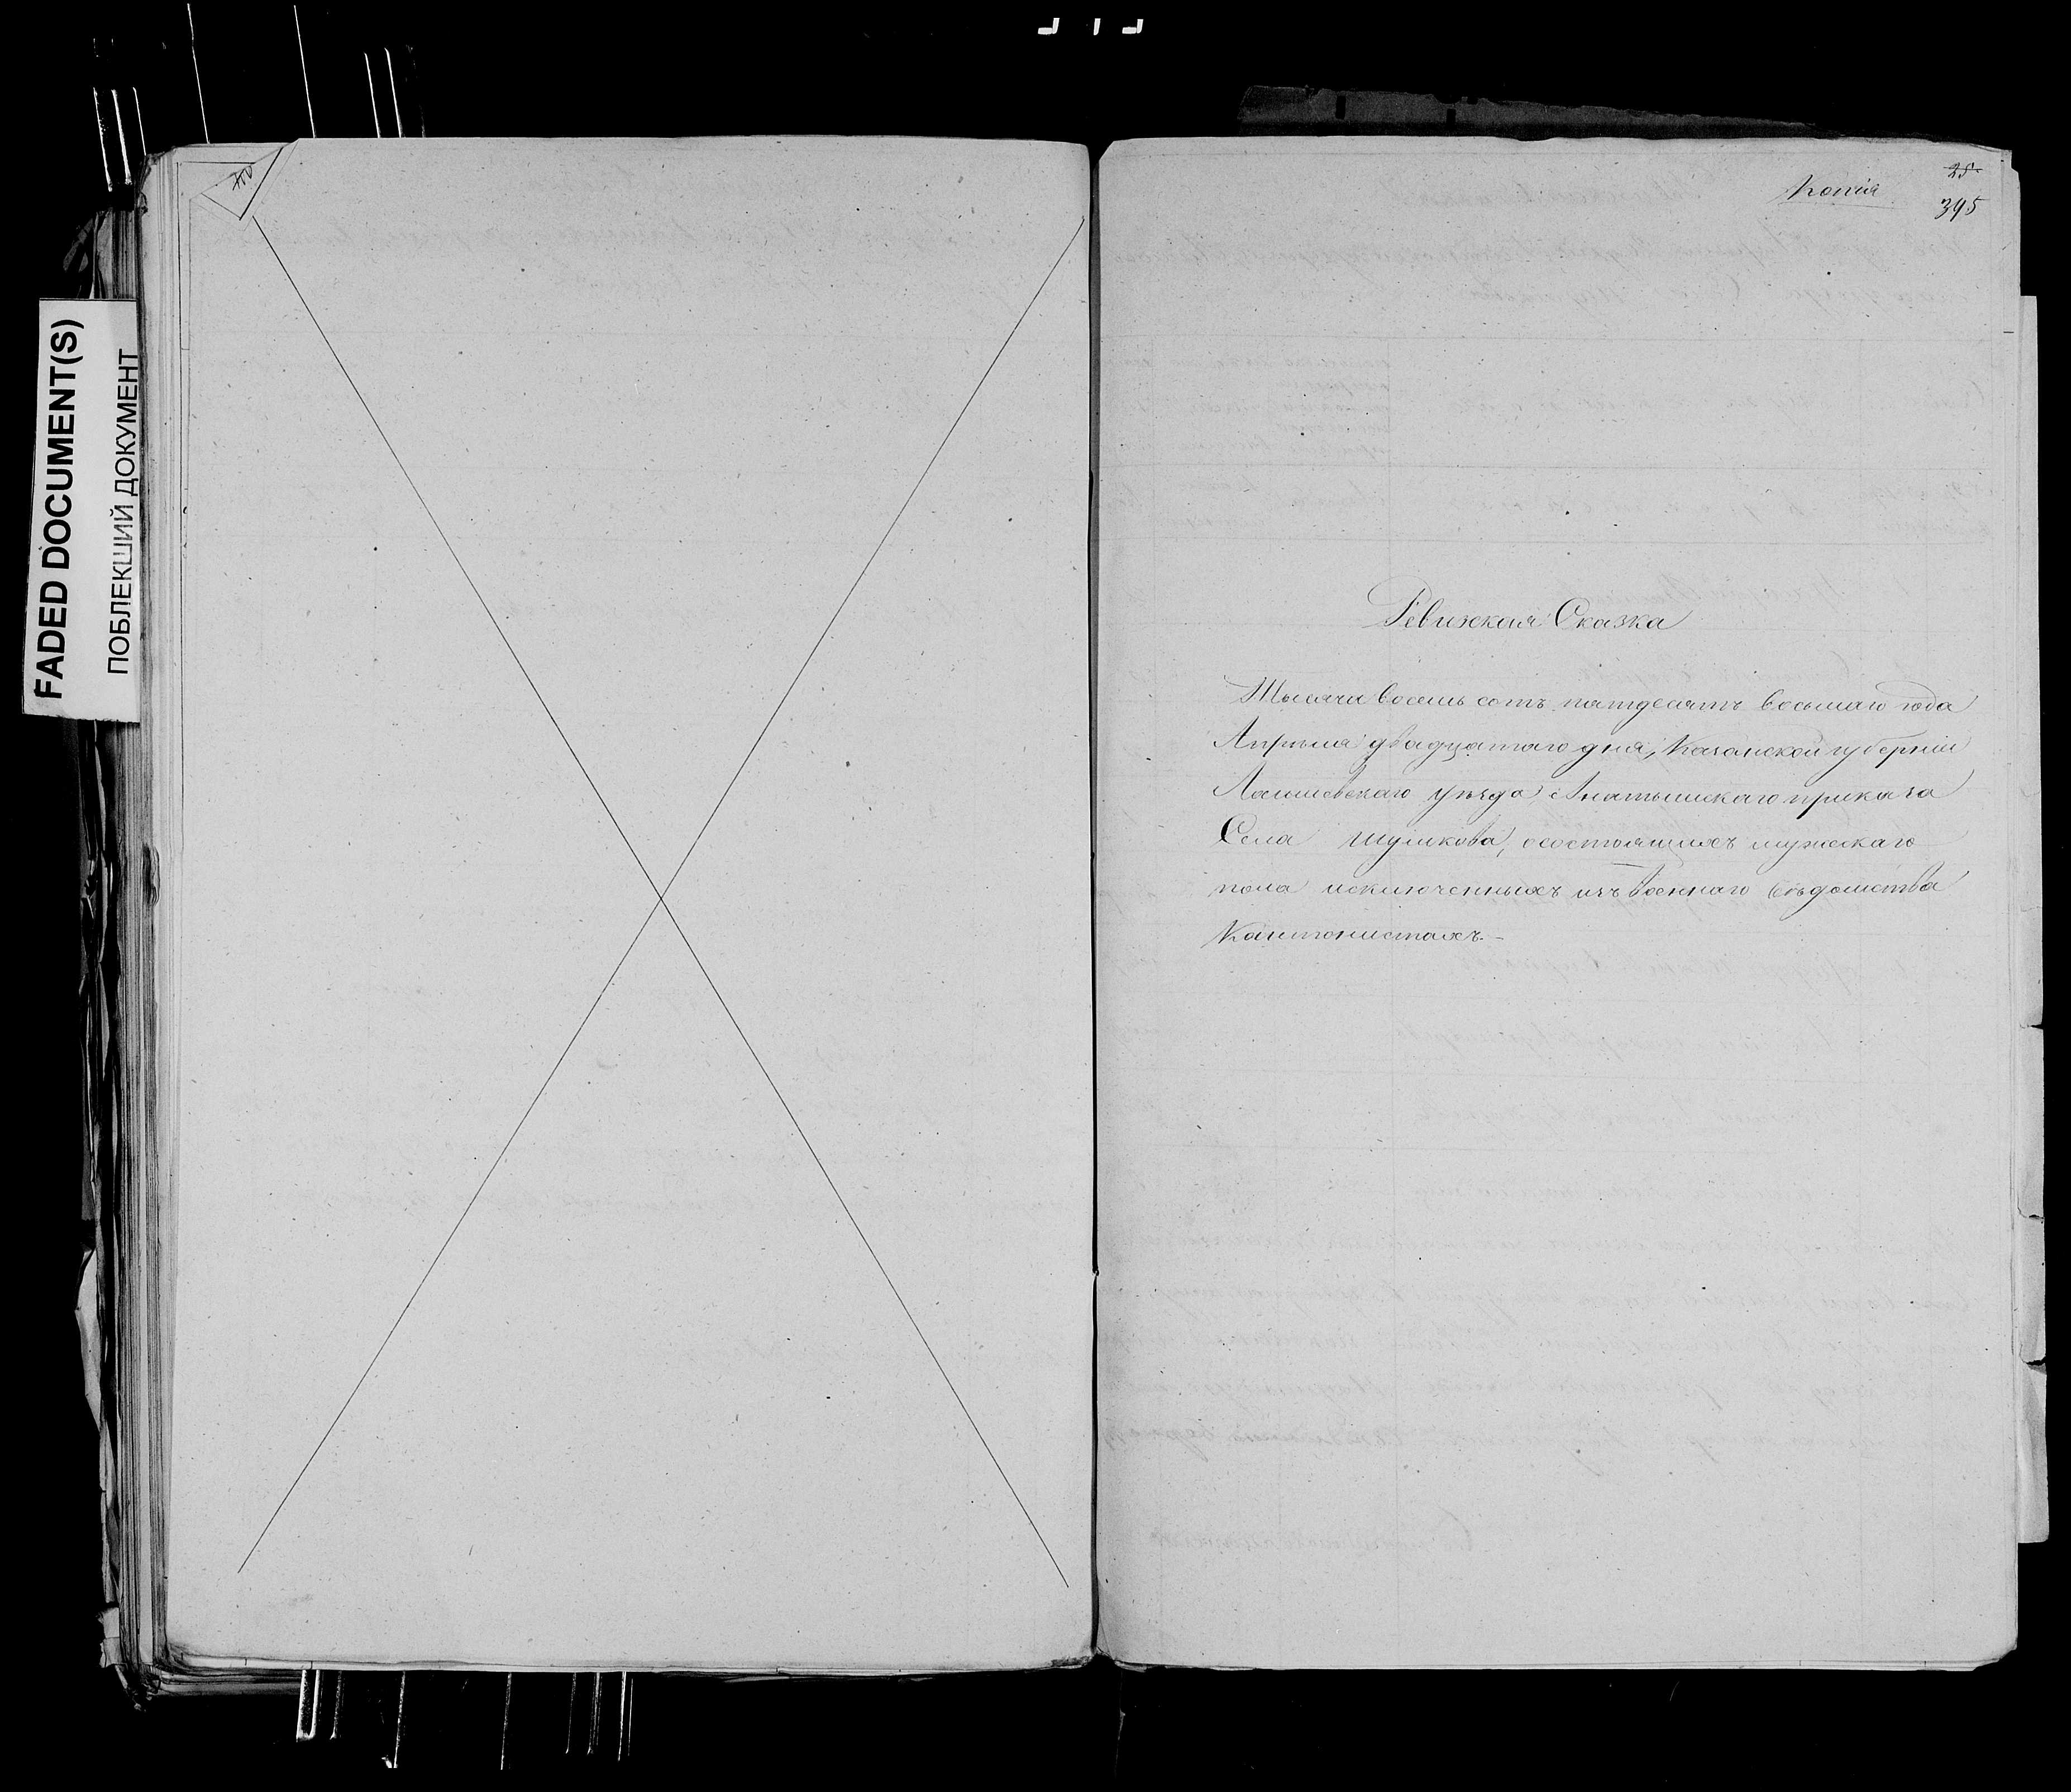 FADED DOCUMENT(S)
ПОБЛЕКШИЙ ДОКУМЕНТ
25
Копія
395
Ревижская Сказка
Тысяча восемь сотъ патдесятъ восьмаго года
Апрѣля двадцатаго дня, Казанской губерніи
Лаишевскаго уѣзда, Анатышскаго приказа
Села Шумкова, осостоящихъ мужескаго
пола исключенныхъ изъ военнаго вѣдомства
Кантонистахъ.-